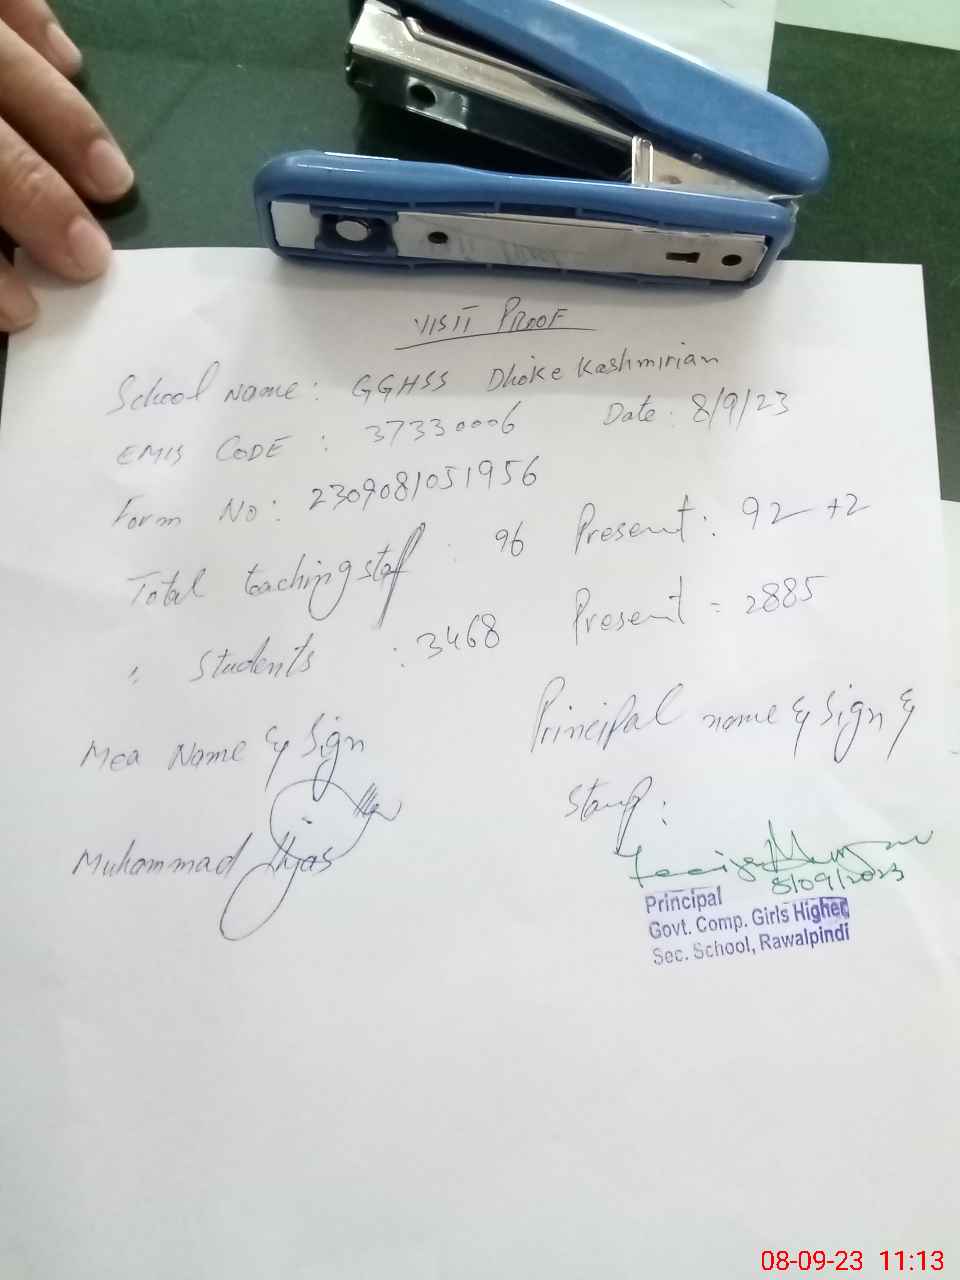 VISIT PROOF
School Name: GGHSS Dhoke Kashmirian
EMIS CODE : 37330006 Date: 8/9/23
Form No: 2309081051956
Total teaching staff : 96 Present: 92 +2
" Students : 3468 Present = 2885
Mea Name & Sign
Principal name & Sign &
Stamp:
Muhammad Ilyas
8/09/2023
Principal
Govt. Comp. Girls Higher
Sec. School, Rawalpindi
08-09-23 11:13